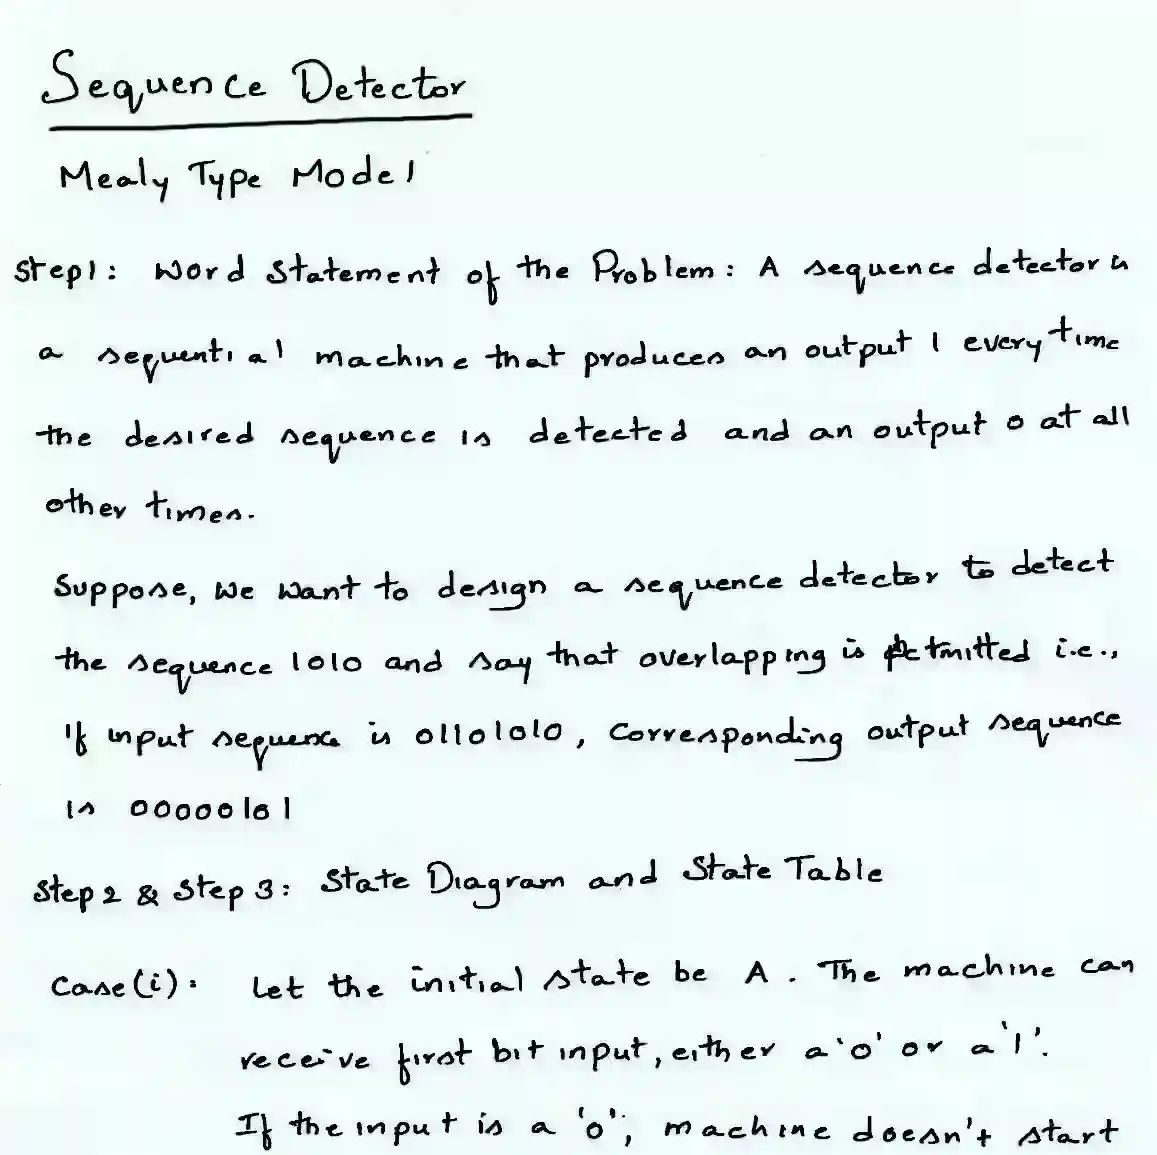 Sequence Detector
Mealy Type Model
Step1: Word Statement of the Problem: A sequence detector is
a sequential machine that produces an output 1 every time
the desired sequence is detected and an output 0 at all
other times.
Suppose, we want to design a sequence detector to detect
the sequence 1010 and say that overlapping is permitted i.e.,
if input sequence is 01101010, corresponding output sequence
is 00000101
Step 2 & Step 3: State Diagram and State Table
Case(i): Let the initial state be A. The machine can
receive first bit input, either a '0' or a '1'.
If the input is a '0', machine doesn't start